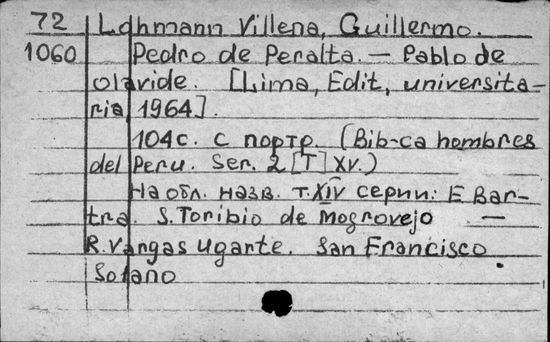 72 Lohmann Villena, Guillermo.
1060 Pedro de Peralta. — Pablo de
olavide. [Lima, Edit, universita-
ria, 1964].
104 с. с портр. (Bib-ca hombres
del Peru. Ser. 2 [T] XV.)
На обл. назв. т. XIV серии: E Bar-
tra. S. Toribio de Mogrovejo —
R. Vargas Ugarte. San Francisco
Solano